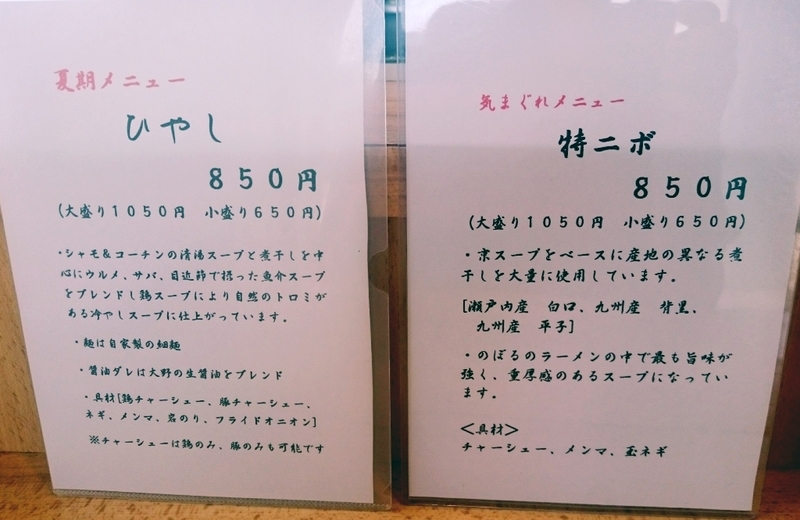 夏期メニュー
ひやし
850円
(大盛り1050円 小盛り650円)
・シャモ&コーチンの清湯スープと煮干しを中
心にウルメ、サバ、目近節で摂った魚介スープ
をブレンドし鶏スープにより自然のトロミが
ある冷やしスープに仕上がっています。
・麺は自家製の細麺
・醤油ダレは大野の生醤油をブレンド
・具材[鶏チャーシュー、豚チャーシュー、
ネギ、メンマ、岩のり、フライドオニオン]
※チャーシューは鶏のみ、豚のみも可能です
気まぐれメニュー
特ニボ
850円
(大盛り1050円 小盛り650円)
・京スープをベースに産地の異なる煮
干しを大量に使用しています。
[瀬戸内産 白口、九州産 背黒、
九州産 平子]
・のぼるのラーメンの中で最も旨味が
強く、重厚感のあるスープになってい
ます。
<具材>
チャーシュー、メンマ、玉ネギ